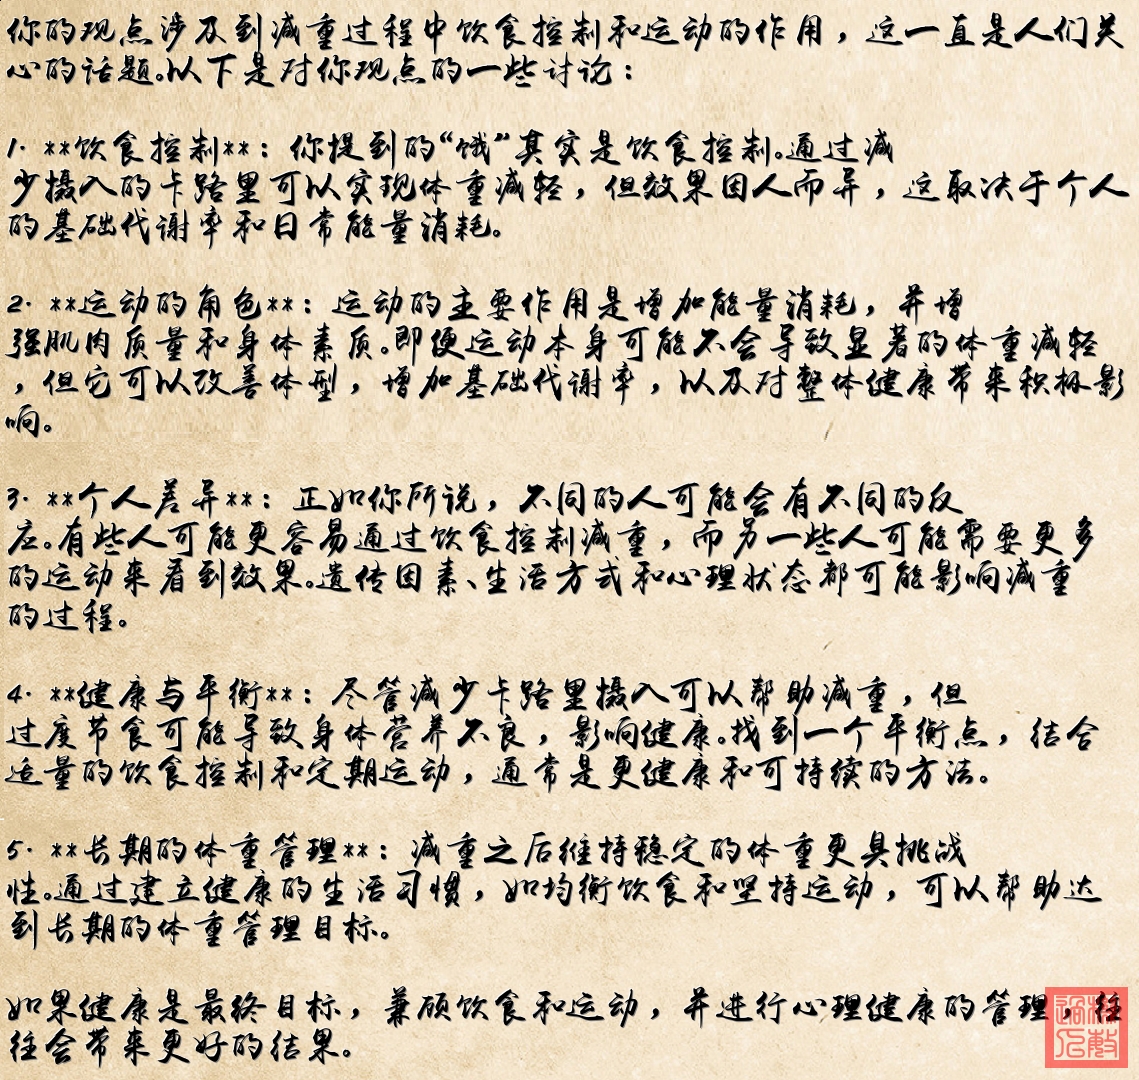 你的观点涉及到减重过程中饮食控制和运动的作用，这一直是人们关
心的话题。以下是对你观点的一些讨论：
1. **饮食控制**：你提到的“饿”其实是饮食控制。通过减
少摄入的卡路里可以实现体重减轻，但效果因人而异，这取决于个人
的基础代谢率和日常能量消耗。
2. **运动的角色**：运动的主要作用是增加能量消耗，并增
强肌肉质量和身体素质。即便运动本身可能不会导致显著的体重减轻
，但它可以改善体型，增加基础代谢率，以及对整体健康带来积极影
响。
3. **个人差异**：正如你所说，不同的人可能会有不同的反
应。有些人可能更容易通过饮食控制减重，而另一些人可能需要更多
的运动来看到效果。遗传因素、生活方式和心理状态都可能影响减重
的过程。
4. **健康与平衡**：尽管减少卡路里摄入可以帮助减重，但
过度节食可能导致身体营养不良，影响健康。找到一个平衡点，结合
适量的饮食控制和定期运动，通常是更健康和可持续的方法。
5. **长期的体重管理**：减重之后维持稳定的体重更具挑战
性。通过建立健康的生活习惯，如均衡饮食和坚持运动，可以帮助达
到长期的体重管理目标。
如果健康是最终目标，兼顾饮食和运动，并进行心理健康的管理，往
往会带来更好的结果。